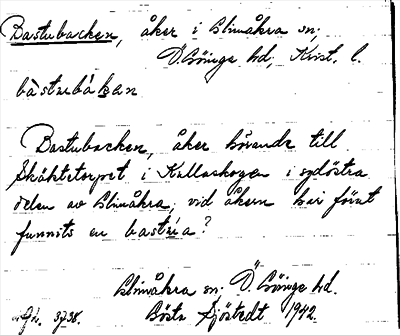 Bastubacken, åker i Glimåkra sn;
Ö. Göinge hd, Krist. l.
bàstubákan
Bastubacken, åker hörande till
i Kullaskogen i sydöstra
delen av Glimåkra; vid åkern har förut
funnits en bastúa?
Glimåkra sn. Ö. Göinge hd.
37-38. Gösta Sjöstedt 1942.